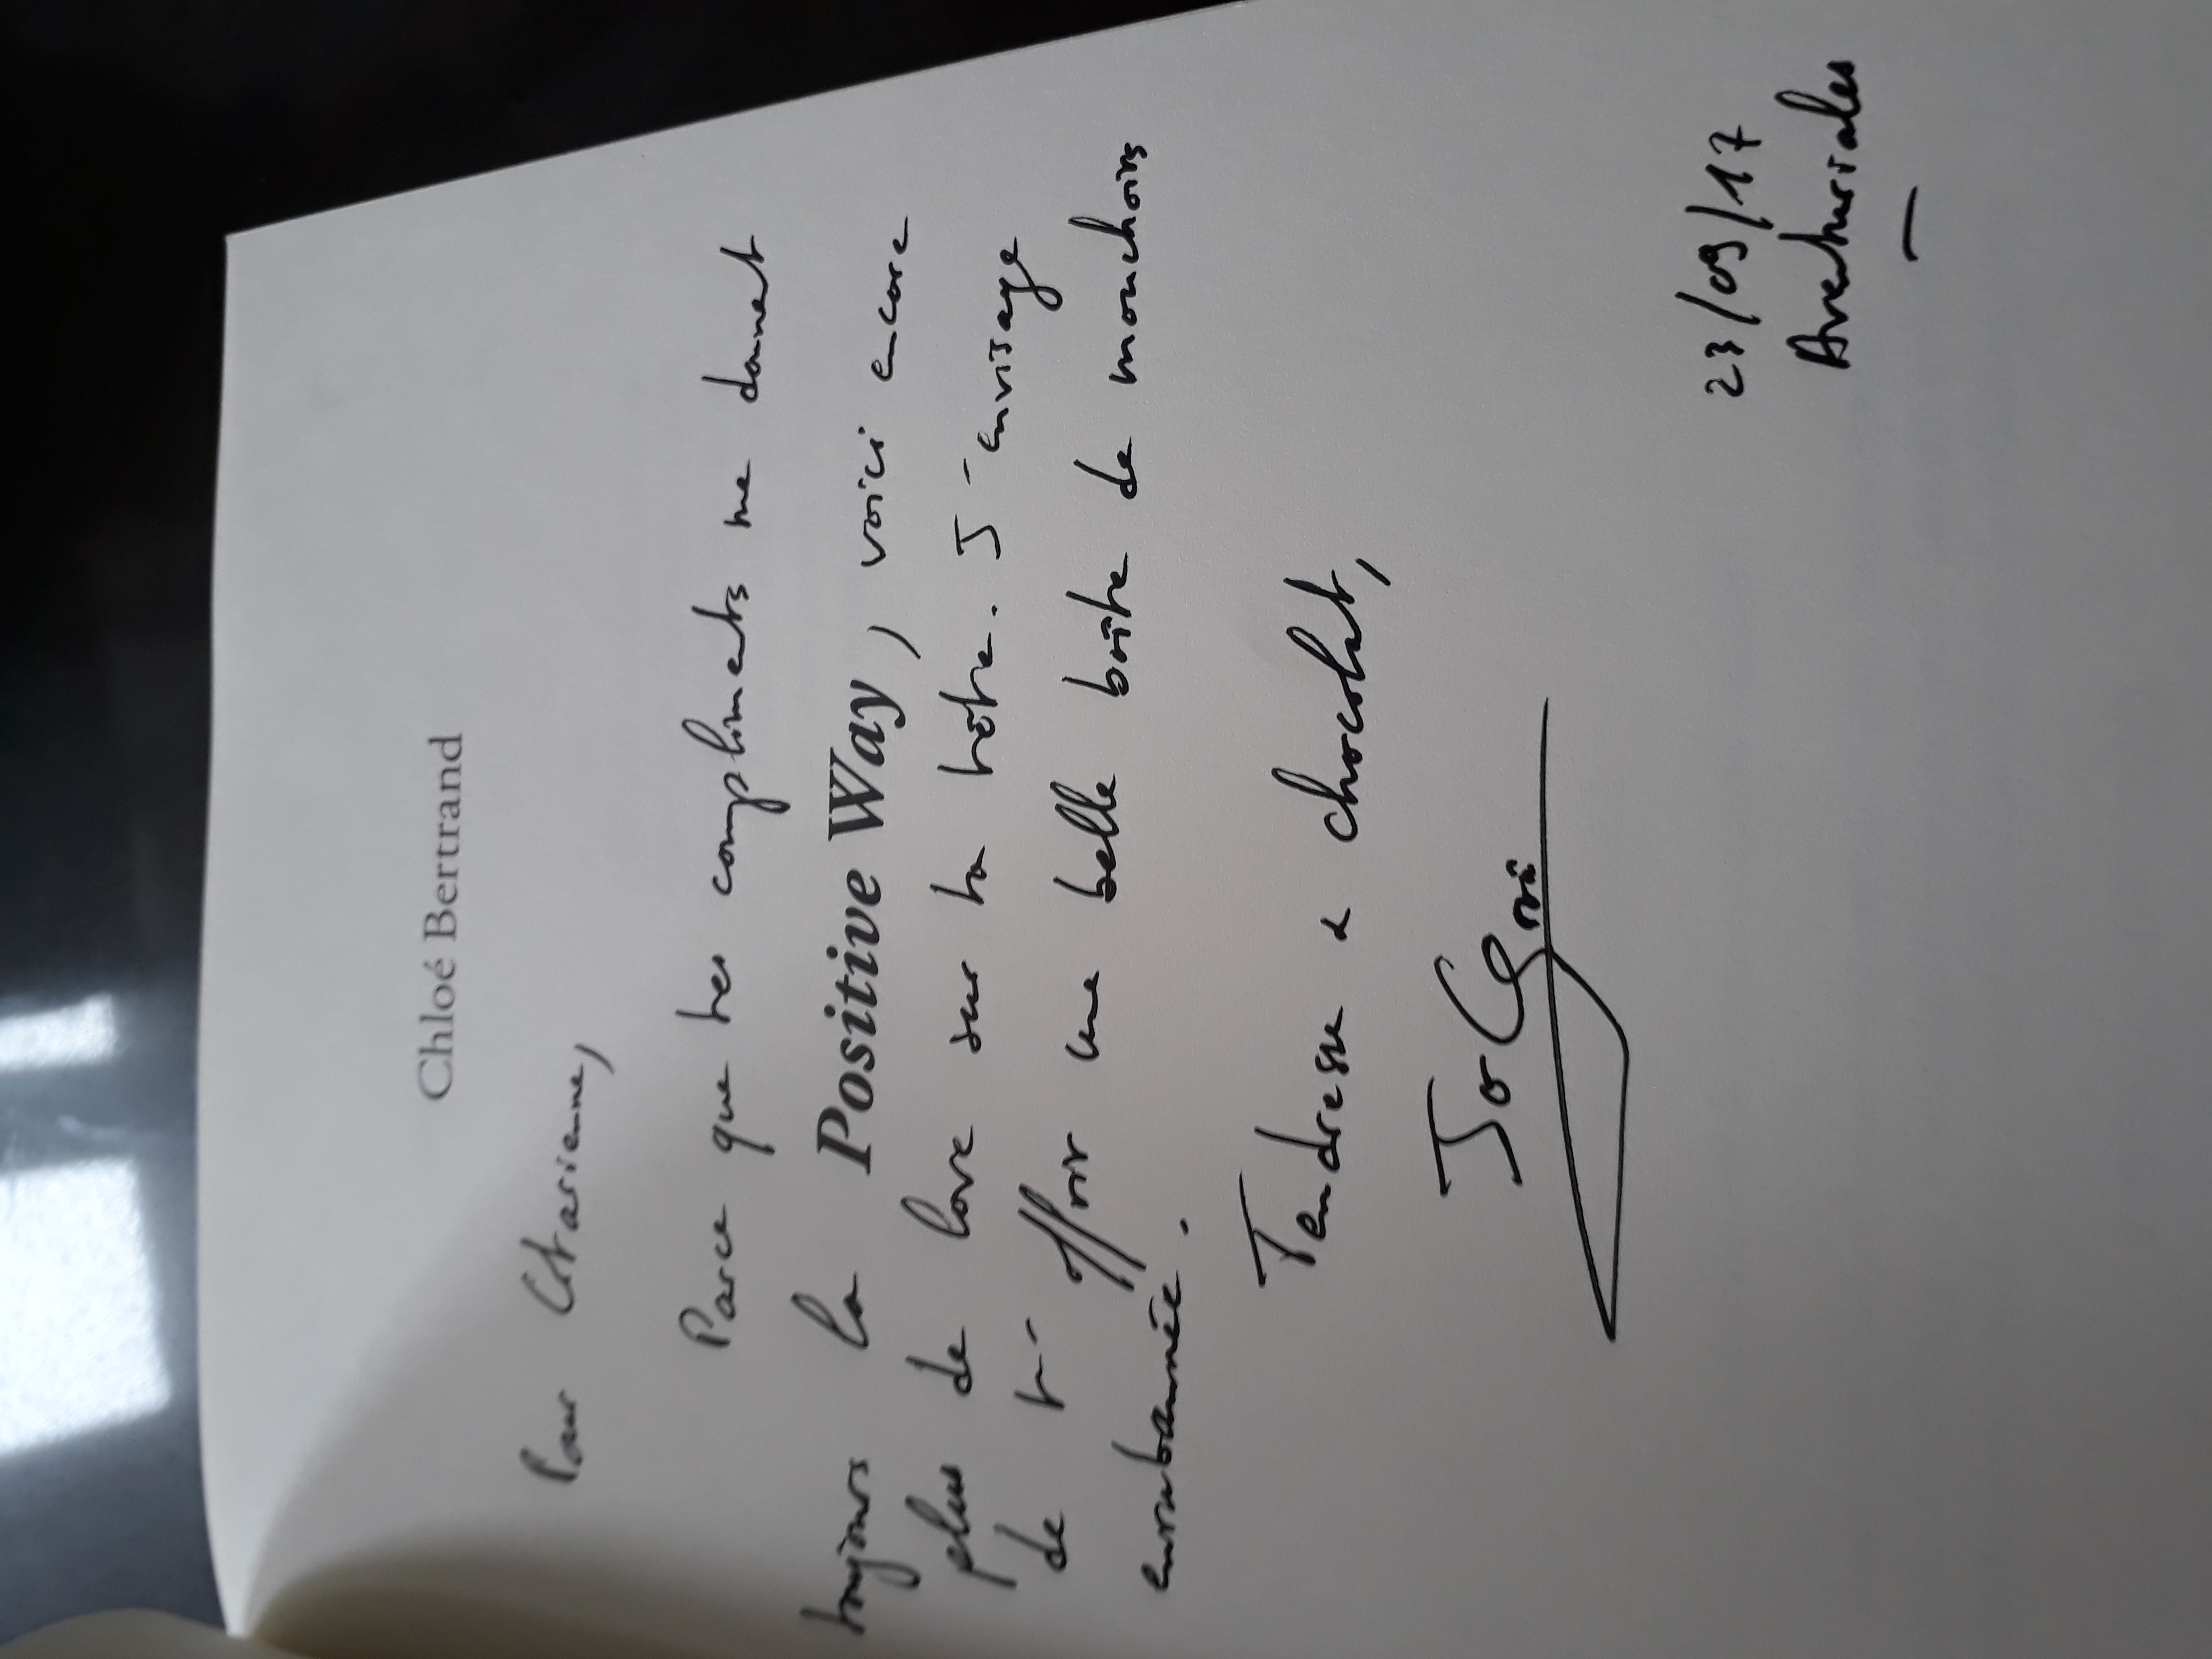 Chloé Bertrand
Pour
Parce que tes compliments me donnent
toujours la Positive Way, voici encore
plus de love sur ta tête. J'envisage
de t'offrir une belle boîte de mouchoirs
enrubannée.
Tendresse & chocolat,
Jo
23/09/17
Aventuriales